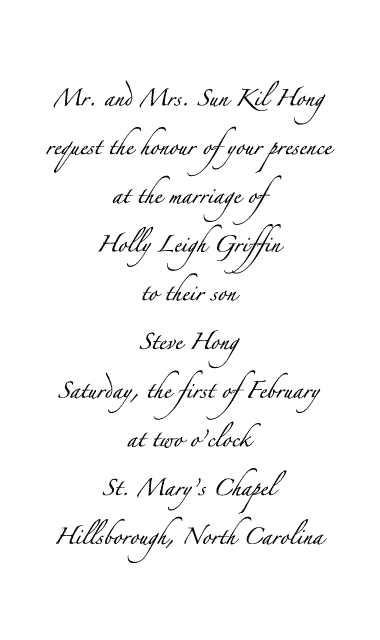 Mr. and Mrs. Sun Kil Hong
request the honour of your presence
at the marriage of
Holly Leigh Griffin
to their son
Steve Hong
Saturday, the first of February
at two o'clock
St. Mary's Chapel
Hillsborough, North Carolina